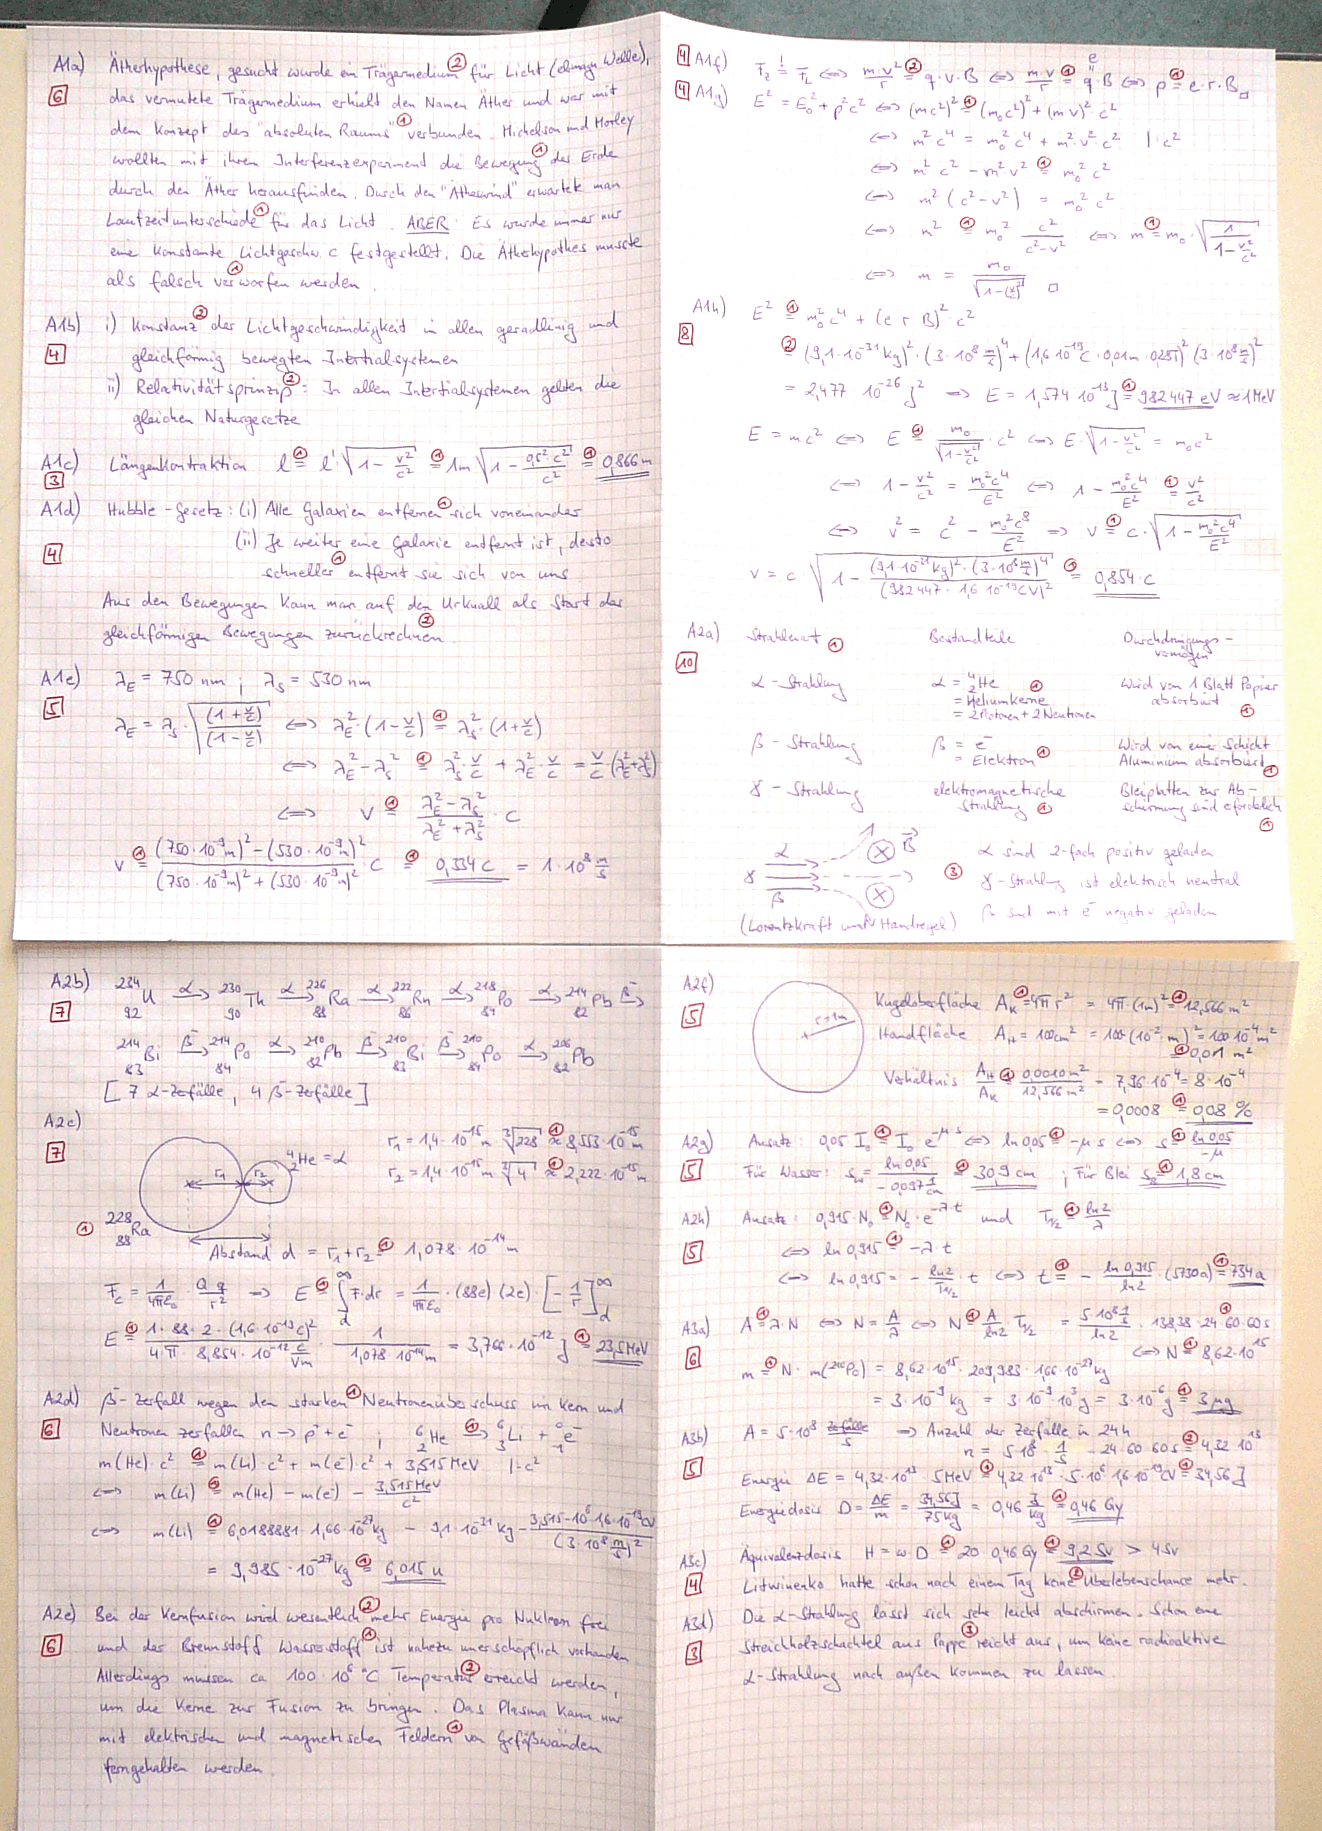 A1a) Ätherhypothese, gesucht wurde ein Trägermedium ② für Licht (elmagn. Welle),
6 das vermutete Trägermedium erhielt den Namen Äther und war mit
dem Konzept des "absoluten Raums" ① verbunden. Michelson und Morley
wollten mit ihrem Interferenzexperiment die Bewegung ① der Erde
durch den Äther herausfinden. Durch den "Ätherwind" erwartete man
Laufzeitunterschiede ① für das Licht. ABER: Es wurde immer nur
eine konstante Lichtgeschw. c festgestellt. Die Ätherhypothes musste
als falsch verworfen ① werden.
A1b) i) Konstanz ② der Lichtgeschwindigkeit in allen geradlinig und
4 gleichförmig bewegten Intertialsystemen
ii) Relativitätsprinzip ②: In allen Intertialsystemen gelten die
gleichen Naturgesetze
A1c) Längenkontraktion l =① l' · √(1 - v²/c²) =① 1m √(1 - 0,5²·c²/c²) =① 0,866 m
3
A1d) Hubble-Gesetz: (i) Alle Galaxien entfernen ① sich voneinander
4 (ii) Je weiter eine Galaxie entfernt ist, desto
schneller ① entfernt sie sich von uns
Aus den Bewegungen kann man auf den Urknall als Start der
gleichförmigen Bewegungen zurückrechnen ②
A1e) λE = 750 nm ; λS = 530 nm
5 λE = λS · √((1 + v/c)/(1 - v/c)) ⇔ λE² · (1 - v/c) =① λS² · (1 + v/c)
⇔ λE² - λS² =① λS² · v/c + λE² · v/c = v/c (λE² + λS²)
⇔ v =① (λE² - λS²)/(λE² + λS²) · c
v =① ((750·10⁻⁹m)² - (530·10⁻⁹m)²)/((750·10⁻⁹m)² + (530·10⁻⁹m)²) · c =① 0,334 c = 1·10⁸ m/s
4 A1f) Fz =! FL ⇔ m·v²/r =② q·v·B ⇔ m·v/r =① q·B ⇔ p =① e·r·B □
e
4 A1g) E² = E₀² + p²c² ⇔ (mc²)² =① (m₀c²)² + (mv)²·c²
⇔ m²c⁴ = m₀²c⁴ + m²·v²·c² |:c²
⇔ m²c² - m²v² =① m₀²c²
⇔ m²(c² - v²) = m₀²c²
⇔ m² =① m₀² c²/(c²-v²) ⇔ m =① m₀ · √(1/(1-v²/c²))
⇔ m = m₀/√(1-(v/c)²) □
A1h) E² =① m₀²c⁴ + (e r B)² c²
8 =② (9,1·10⁻³¹ kg)² · (3·10⁸ m/s)⁴ + (1,6·10⁻¹⁹C · 0,01m · 0,25T)² · (3·10⁸ m/s)²
= 2,477 10⁻²⁶ J² ⇒ E = 1,574 10⁻¹³ J =① 982447 eV ≈ 1 MeV
E = mc² ⇔ E =① m₀/√(1-v²/c²) · c² ⇔ E·√(1-v²/c²) = m₀c²
⇔ 1 - v²/c² = m₀²c⁴/E² ⇔ 1 - m₀²c⁴/E² =① v²/c²
⇔ v² = c² - m₀²c⁸/E² ⇒ v =① c·√(1 - m₀²c⁴/E²)
v = c √(1 - (9,1·10⁻³¹kg)²·(3·10⁸ m/s)⁴/(982447·1,6 10⁻¹⁹CV)²) =① 0,854·c
A2a) Strahlenart ① Bestandteile Durchdringungs-
10 vermögen
α-Strahlung α = ⁴₂He ① Wird von 1 Blatt Papier
= Heliumkerne absorbiert ①
= 2 Protonen + 2 Neutronen
β-Strahlung β = e⁻ Wird von einer Schicht
= Elektron ① Aluminium absorbiert ①
γ-Strahlung elektromagnetische Bleiplatten zur Ab-
Strahlung ① schirmung sind erforderlich ①
α B α sind 2-fach positiv geladen
γ ③ γ-Strahlung ist elektrisch neutral
β β sind mit e⁻ negativ geladen
(Lorentzkraft und Handregel)
A2b) ²³⁴₉₂U →α ²³⁰₉₀Th →α ²²⁶₈₈Ra →α ²²²₈₆Rn →α ²¹⁸₈₄Po →α ²¹⁴₈₂Pb →β⁻
7 ²¹⁴₈₃Bi →β⁻ ²¹⁴₈₄Po →α ²¹⁰₈₂Pb →β⁻ ²¹⁰₈₃Bi →β⁻ ²¹⁰₈₄Po →α ²⁰⁶₈₂Pb
[7 α-Zerfälle, 4 β⁻-Zerfälle]
A2c) r₁ = 1,4·10⁻¹⁵ m ³√228 ≈① 8,553·10⁻¹⁵ m
7 ⁴₂He = α r₂ = 1,4·10⁻¹⁵ m ³√4 ≈① 2,222·10⁻¹⁵ m
r₁ r₂
① ²²⁸₈₈Ra
Abstand d = r₁ + r₂ =① 1,078·10⁻¹⁴ m
Fc = 1/(4πε₀) · Q q/r² ⇒ E =① ∫ F·dr = 1/(4πε₀) · (88e)(2e) · [-1/r] ∞ d
E =① 1·88·2·(1,6·10⁻¹⁹C)²/(4·π·8,854·10⁻¹² C/Vm) · 1/(1,078·10⁻¹⁴m) = 3,766·10⁻¹² J =① 23,5 MeV
A2d) β⁻-Zerfall wegen den starken ① Neutronenüberschuss im Kern und
6 Neutronen zerfallen n → p⁺ + e⁻ ; ⁶₂He →① ⁶₃Li + ⁰₋₁e⁻
m(He)·c² =① m(Li)·c² + m(e⁻)·c² + 3,515 MeV |:c²
⇔ m(Li) =① m(He) - m(e⁻) - 3,515 MeV/c²
⇔ m(Li) =① 6,0188881·1,66·10⁻²⁷ kg - 9,1·10⁻³¹ kg - 3,515·10⁶·1,6·10⁻¹⁹CV/(3·10⁸ m/s)²
= 9,985·10⁻²⁷ kg =① 6,015 u
A2e) Bei der Kernfusion wird wesentlich ② mehr Energie pro Nukleon frei
6 und das Brennstoff Wasserstoff ① ist nahezu unerschöpflich vorhanden.
Allerdings müssen ca 100·10⁶ °C Temperatur ② erreicht werden,
um die Kerne zur Fusion zu bringen. Das Plasma kann nur
mit elektrischen und magnetischen Feldern ① von Gefäßwänden
ferngehalten werden.
A2f) r = 1m Kugeloberfläche AK =① 4π r² = 4π·(1m)² =① 12,566 m²
5 Handfläche AH = 100cm² = 100·(10⁻² m)² = 100·10⁻⁴ m²
=① 0,01 m²
Verhältnis AH/AK =① 0,0010 m²/12,566 m² = 7,96·10⁻⁴ = 8·10⁻⁴
= 0,0008 =① 0,08 %
A2g) Ansatz: 0,05 I₀ =① I₀ e^(-μ·s) ⇔ ln 0,05 =① -μ·s ⇔ s =① ln 0,05/-μ
5 Für Wasser: sw = ln 0,05/(-0,097 1/cm) =① 30,9 cm ; Für Blei s =① 1,8 cm
A2h) Ansatz: 0,915·N₀ =① N₀·e^(-λ·t) und T1/2 =① ln 2/λ
5 ⇔ ln 0,915 =① -λ t
⇔ ln 0,915 = - ln 2/T1/2 · t ⇔ t =① - ln 0,915/ln 2 · (5730a) =① 734 a
A3a) A =① λ·N ⇔ N = A/λ ⇔ N =① A/ln2 · T1/2 = 5 10⁸ 1/s / ln 2 · 138,38·24·60·60s ①
6 ⇔ N =① 8,62·10¹⁵
m =① N · m(²¹⁰Po) = 8,62·10¹⁵ · 209,983 · 1,66·10⁻²⁷ kg
= 3·10⁻⁹ kg = 3·10⁻⁹ 10³ g = 3·10⁻⁶ g =① 3 μg
A3b) A = 5·10⁸ Zerfälle/s ⇒ Anzahl der Zerfälle in 24h
5 n = 5·10⁸ 1/s · 24·60·60s =② 4,32·10¹³
Energie ΔE = 4,32·10¹³ · 5MeV =① 4,32 10¹³ · 5·10⁶ 1,6·10⁻¹⁹CV =① 34,56 J
Energiedosis D = ΔE/m = 34,56J/75kg = 0,46 J/kg =① 0,46 Gy
A3c) Äquivalenzdosis H = w·D =① 20·0,46 Gy =① 9,2 Sv > 4 Sv
4 Litwinenko hatte schon nach einem Tag keine ② Überlebenschance mehr.
A3d) Die α-Strahlung lässt sich sehr leicht abschirmen. Schon eine
3 Streichholzschachtel aus Pappe ③ reicht aus, um keine radioaktive
α-Strahlung nach außen kommen zu lassen.